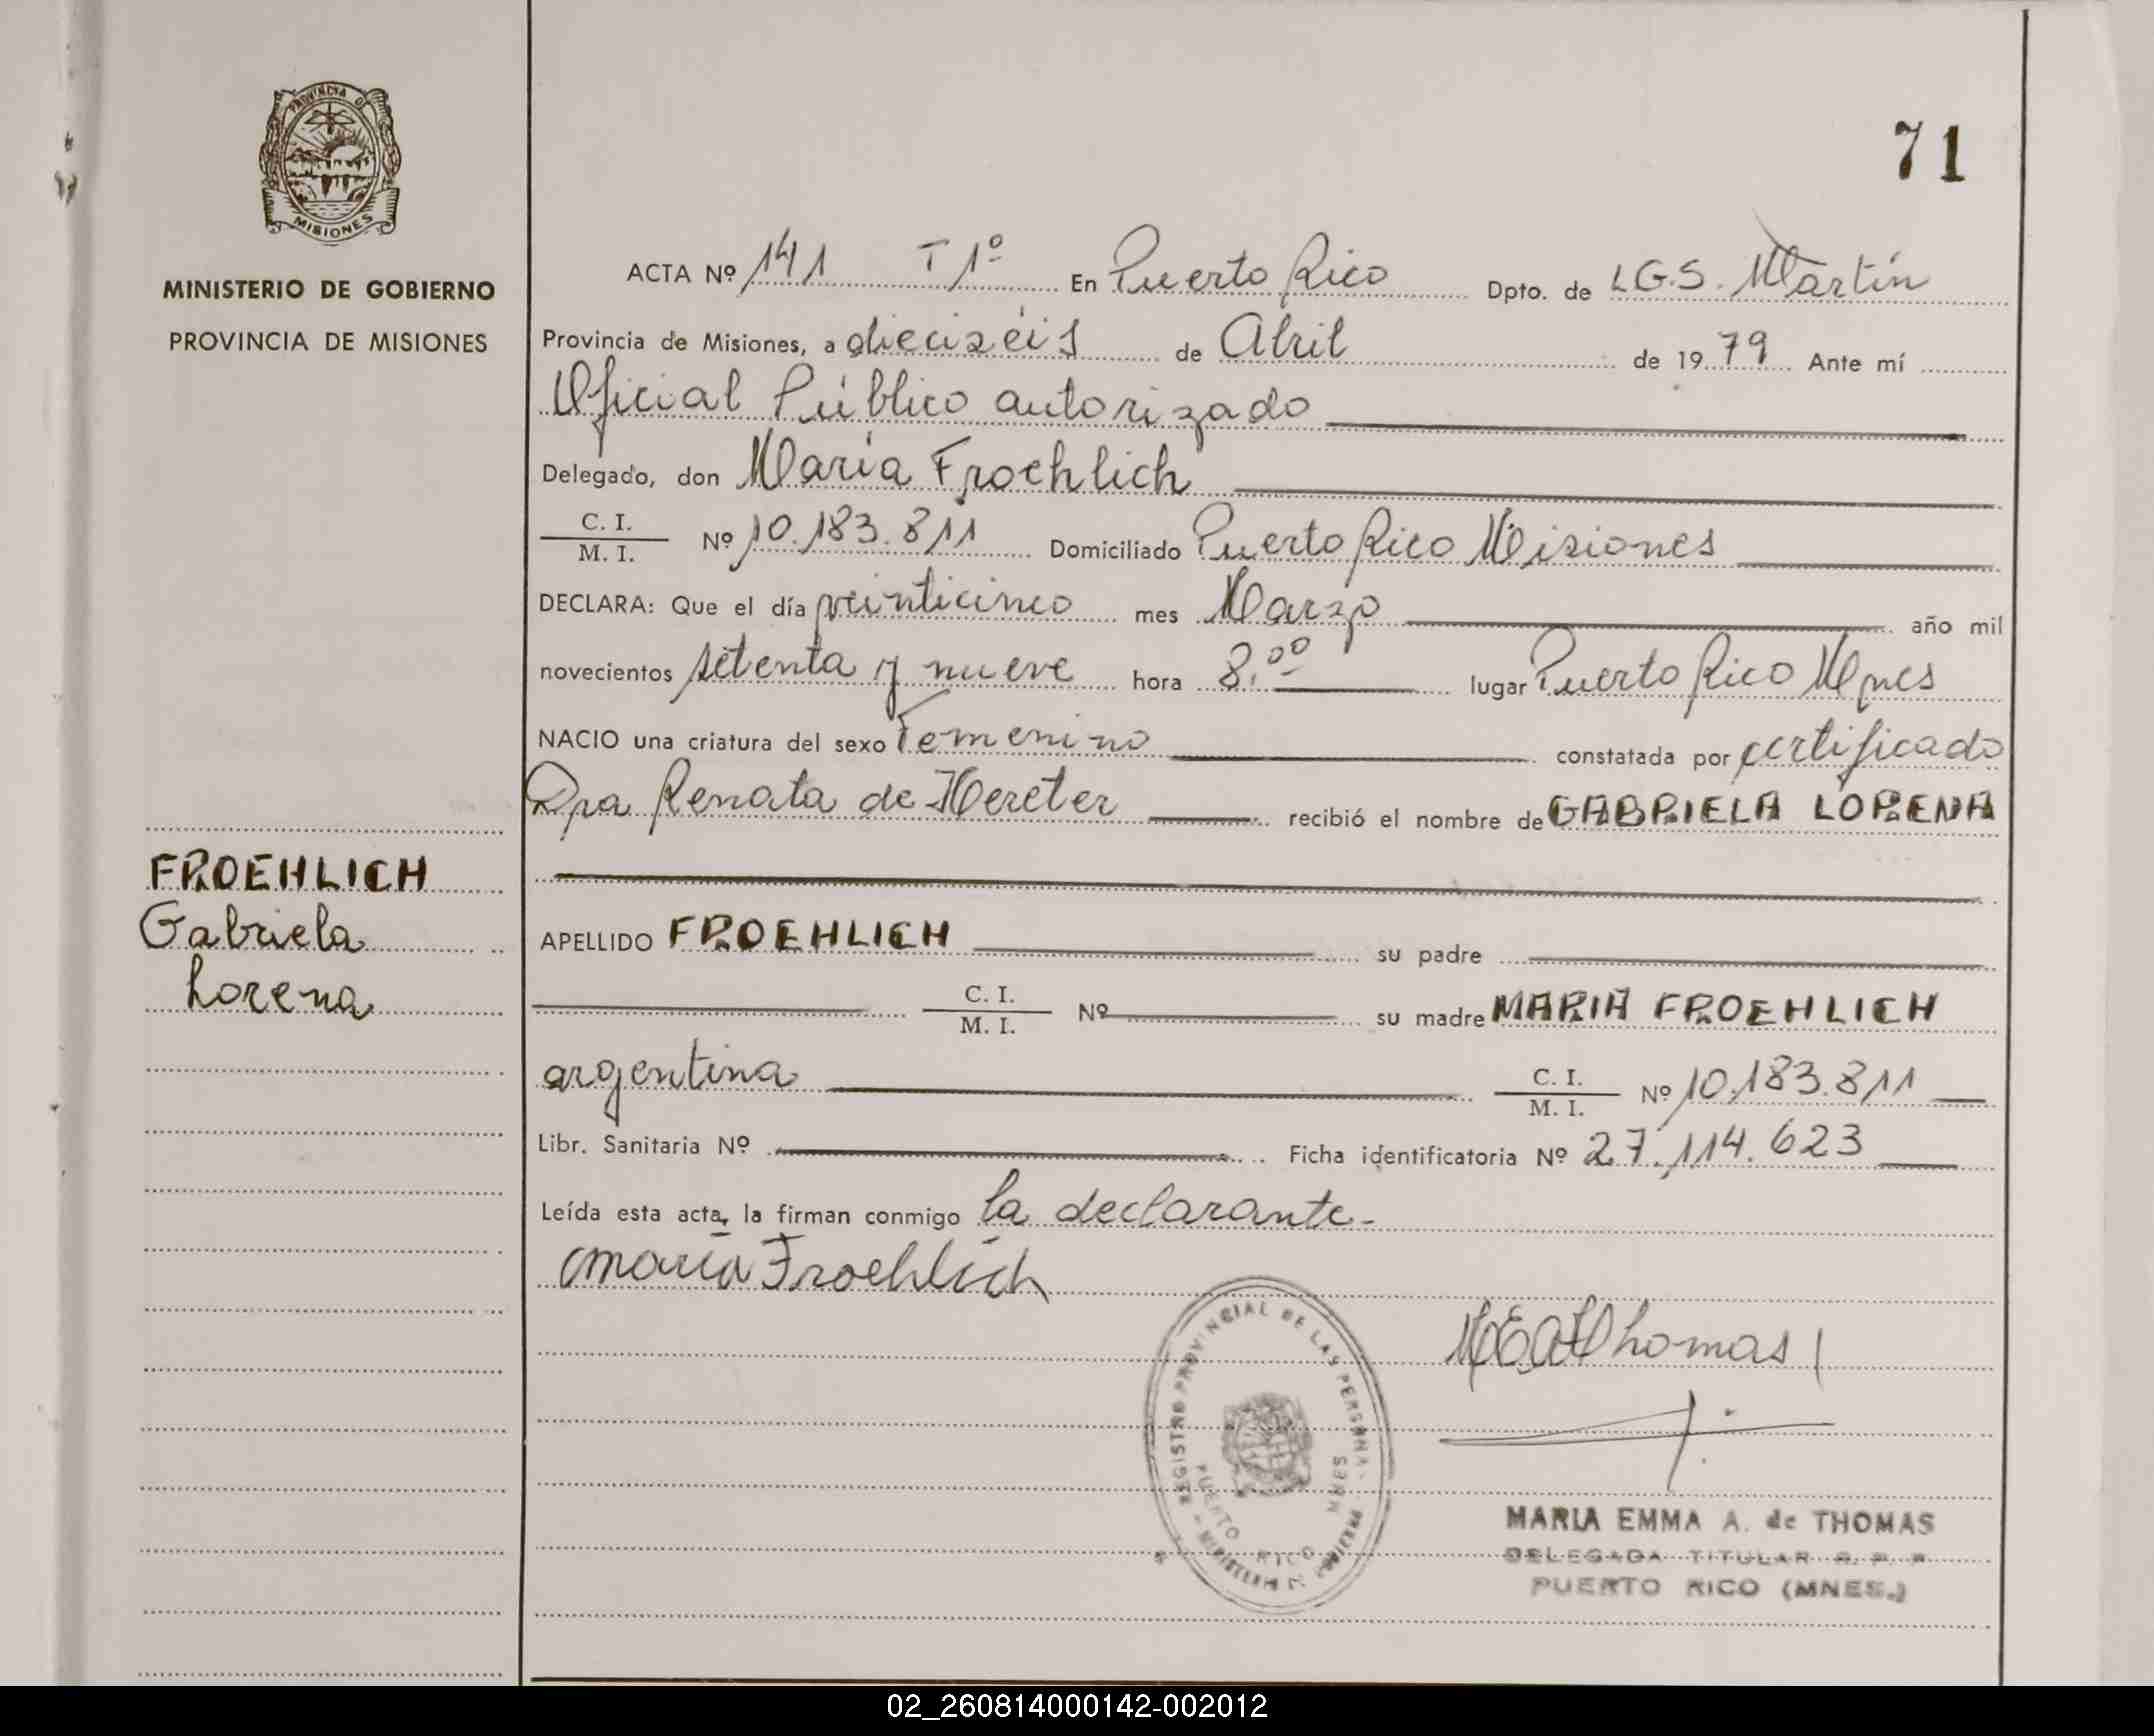 PROVINCIA D
MISIONES
MINISTERIO DE GOBIERNO
PROVINCIA DE MISIONES
71
ACTA Nº 141 T 1º En Puerto Rico Dpto. de L.G.S. Martín
Provincia de Misiones, a dieciséis de Abril de 1979 Ante mí
Oficial Público autorizado
Delegado, don María Froehlich
C. I.
M. I. Nº 10.183.811 Domiciliado Puerto Rico Misiones
DECLARA: Que el día veinticinco mes Marzo año mil
novecientos setenta y nueve hora 8.00 lugar Puerto Rico Mnes
NACIO una criatura del sexo Femenino constatada por certificado
Dra Renata de Hereter recibió el nombre de GABRIELA LORENA
FROEHLICH
Gabriela
Lorena
APELLIDO FROEHLICH su padre
C. I.
M. I. Nº su madre MARIA FROEHLICH
argentina C. I.
M. I. Nº 10.183.811
Libr. Sanitaria Nº Ficha identificatoria Nº 27.114.623
Leída esta acta, la firman conmigo la declarante.-
María Froehlich
REGISTRO PROVINCIAL DE LAS PERSONAS
PUERTO RICO MNES
MEAThomas
MARIA EMMA A. de THOMAS
DELEGADA TITULAR R. P. P.
PUERTO RICO (MNES.)
02_260814000142-002012